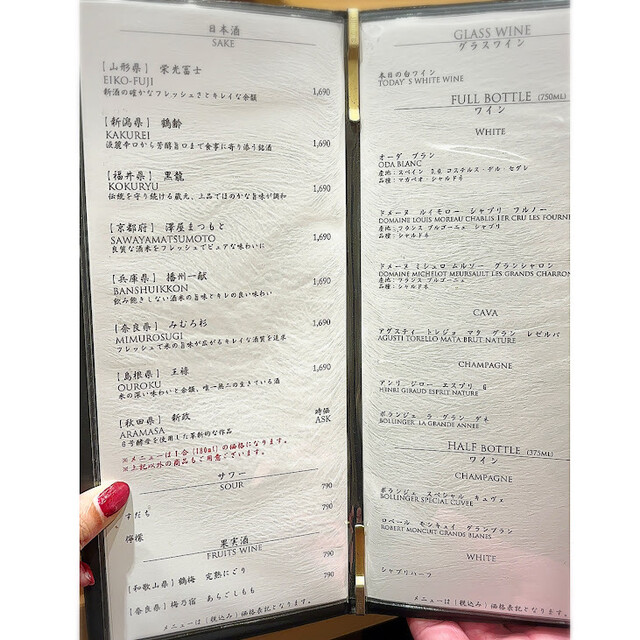 日本酒
SAKE
[山形県] 栄光冨士
EIKO-FUJI
新酒の確かなフレッシュさとキレイな余韻 1,690
[新潟県] 鶴齢
KAKUREI
淡麗辛口から芳醇旨口まで食事に寄り添う銘酒 1,690
[福井県] 黒龍
KOKURYU
伝統を守り続ける蔵元、上品でほのかな旨味が調和 1,690
[京都府] 澤屋まつもと
SAWAYAMATSUMOTO
良質な酒米をフレッシュでピュアな味わいに 1,690
[兵庫県] 播州一献
BANSHUIKKON
飲み飽きしない酒米の旨味とキレの良い味わい 1,690
[奈良県] みむろ杉
MIMUROSUGI
フレッシュで米の旨味が広がるキレイな酒質を追求 1,690
[島根県] 王祿
OUROKU
米の深い味わいと余韻、唯一無二の生きている酒 1,690
[秋田県] 新政 時価
ARAMASA ASK
6号酵母を使用した革新的な作品
※メニューは1合(180ml)の価格になります。
※上記以外の商品もご用意ございます。
サワー
SOUR
すだち 790
檸檬 790
果実酒
FRUITS WINE
[和歌山県] 鶴梅 完熟にごり 790
[奈良県] 梅乃宿 あらごしもも 790
メニューは(税込み)価格表記となります。
GLASS WINE
グラスワイン
本日の白ワイン
TODAY'S WHITE WINE
FULL BOTTLE (750ML)
ワイン
WHITE
オーダ ブラン
ODA BLANC
産地:スペイン D.O コステルス・デル・セグレ
品種:マカベオ・シャルドネ
ドメーヌ ルイモロー シャブリ フルノー
DOMAINE LOUIS MOREAU CHABLIS 1ER CRU LES FOURNE
産地:フランス ブルゴーニュ シャブリ
品種:シャルドネ
ドメーヌ ミシュロ ムルソー グランシャロン
DOMAINE MICHELOT MEURSAULT LES GRANDS CHARRON
産地:フランス ブルゴーニュ
品種:シャルドネ
CAVA
アグスティ トレジョ マタ グラン レゼルバ
AGUSTI TORELLO MATA BRUT NATURE
CHAMPAGNE
アンリ ジロー エスプリ G
HENRI GIRAUD ESPRIT NATURE
ボランジェ ラ グラン ダネ
BOLLINGER LA GRANDE ANNEE
HALF BOTTLE (375ML)
ワイン
CHAMPAGNE
ボランジェ スペシャル キュヴェ
BOLLINGER SPECIAL CUVEE
ロベール モンキュイ グランブラン
ROBERT MONCUIT GRANDS BLANES
WHITE
シャブリハーフ
メニューは(税込み)価格表記となります。